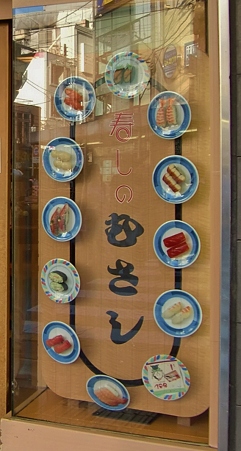 寿しの
むさし